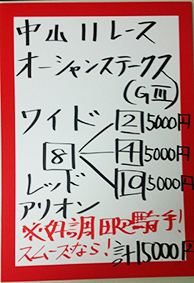 中山11レース
オーシャンステークス
(GⅢ)
ワイド
2 5000円
8 4 5000円
レッド 10 5000円
アリオン
※絶調眼騎手!
スムーズなら! 計15000円